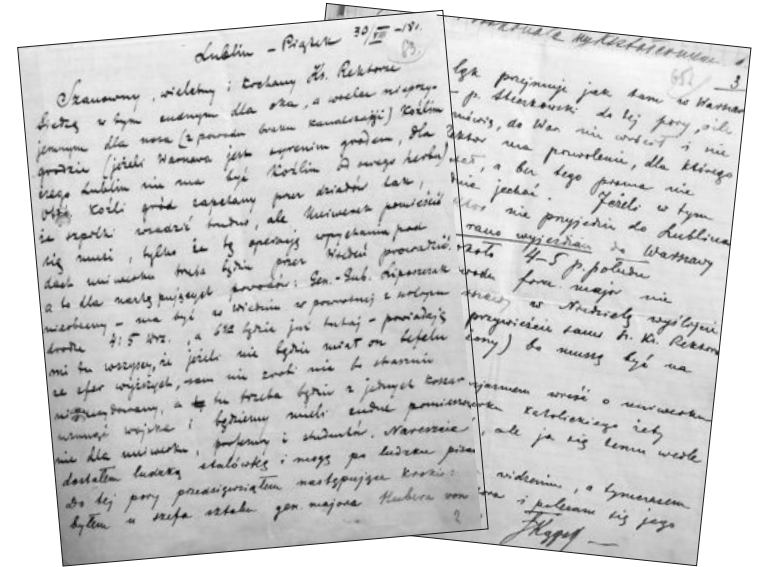 Lublin – Piątek 30/VIII – 18 r.
83.
Szanowny, wielebny i kochany Ks. Rektorze
Siedzę w tym cudnym dla oka, a wcale nieprzy-
jemnym dla nosa (z powodu braku kanalizacji) Koźlim
grodzie (jeżeli Warszawa jest syrenim grodem, dla
czego Lublin nie ma być Koźlim od swego herbu)
Otóż Koźli gród zapchany przez dziadów tak,
że szpilki wsadzić trudno, ale Uniwersek pomieścić
się musi, tylko że tę operację wpychania pod
dach uniwerku trzeba będzie przez Wiedeń prowadzić,
a to dla następujących powodów: Gen.-Gub. Liposcsak
nieobecny – ma być w Wiedniu w powrotnej z urlopu
drodze 4 i 5 wrz., a 6 i 7 będzie już tutaj – powiadają
mi tu wszyscy, że jeżeli nie będzie miał on befelu
ze sfer wyższych, sam nie zrobi nic bo strasznie
niezdecydowany, a tu trzeba będzie z jednych koszar
usunąć wojsko i będziemy mieli cudne pomieszcze-
nie dla uniwerku, profesorów i studentów. Nareszcie
dostałem ludzką stalówkę i mogę po ludzku pisać
Do tej pory przedsięwziąłem następujące kroki:
byłem u szefa sztabu gen. majora Hubera von
2
3
65.
przyjmuje jak sam w Warszaw
p. Steczkowski do tej pory, ile
mówią, do War. nie wrócił i nie
ma pozwolenie, dla którego
a bez tego prawa nie
jechać. Jeżeli w tym
nie przyjedzie do Lublina
rano wyjeżdżam do Warszawy
około 4–5 p. południu
form. major nie
w Niedzielę wyślijcie
przywieźcie sami Ks. Rektor
bo muszą być na
wieść o uniwersku
katolickiego żeby
ale ja się temu wcale
widzenia, a tymczasem
i polecam się jego